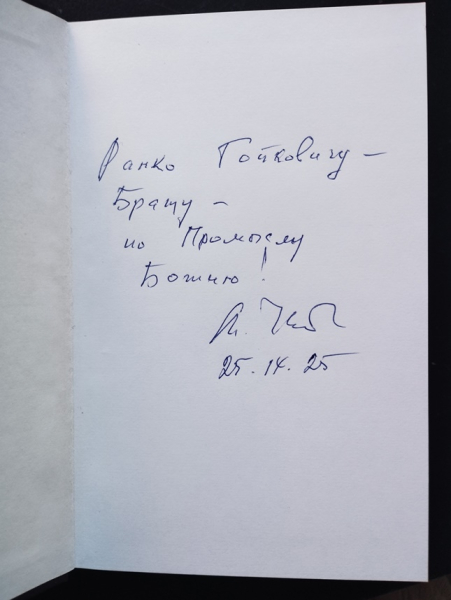 Ранко Гойковичу –
Брату –
по Промыслу
Божию!
25.14.25